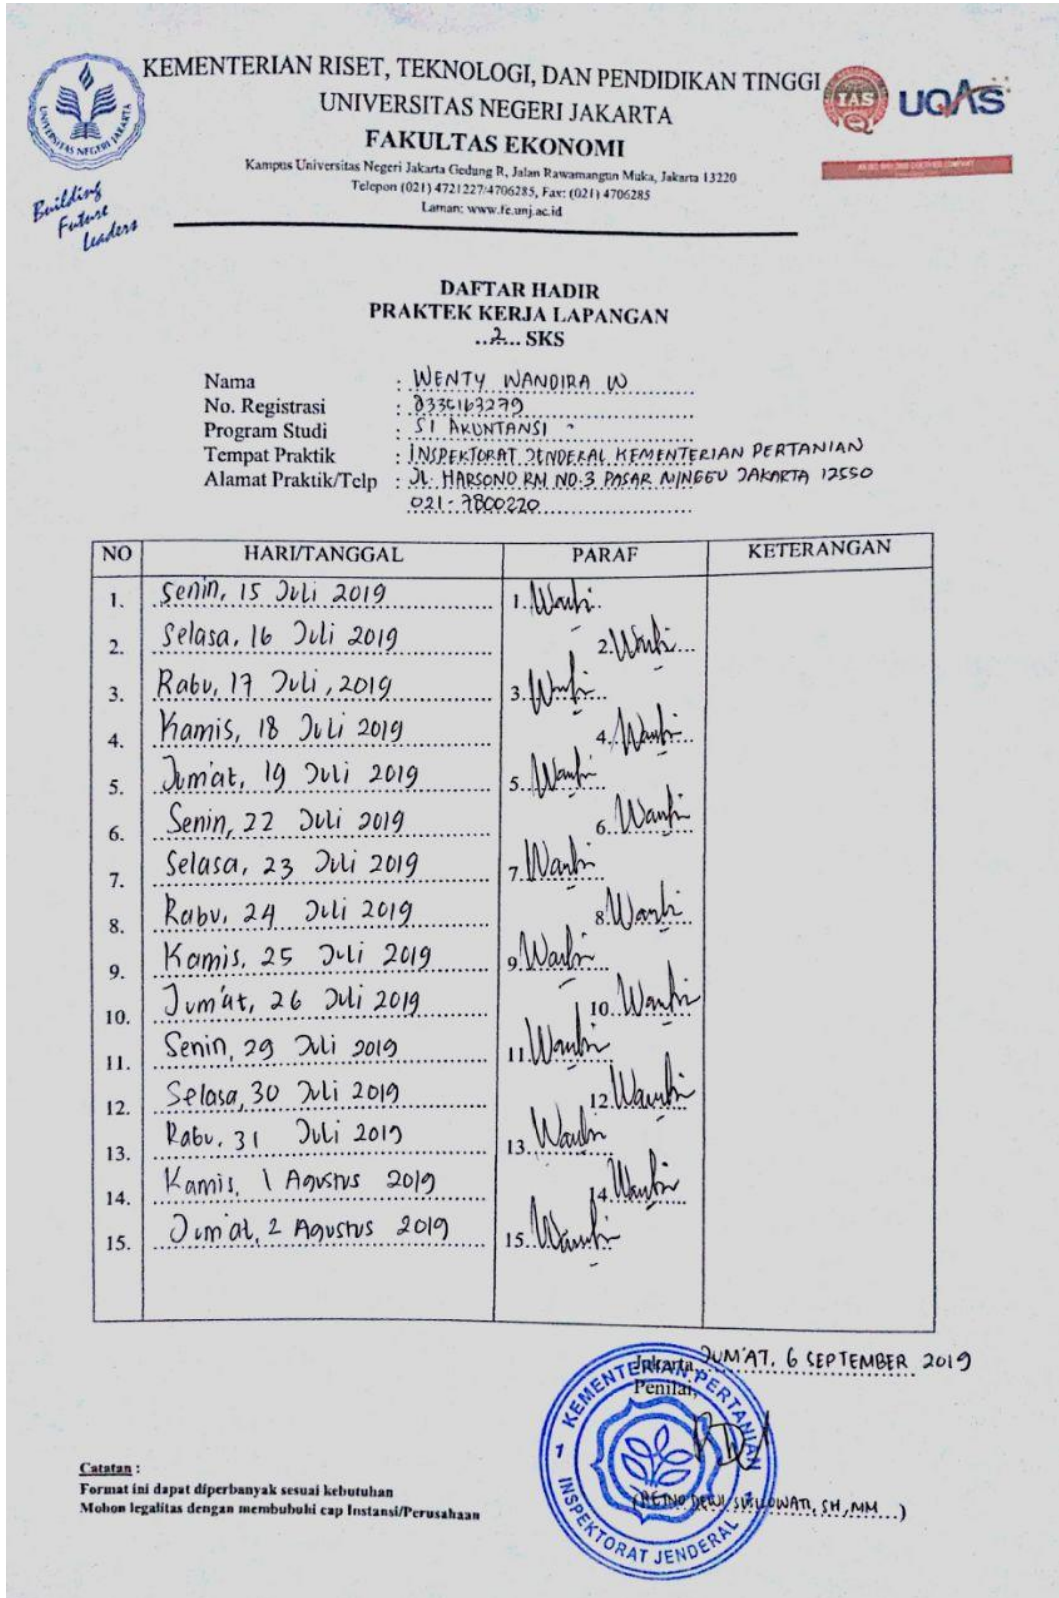 KEMENTERIAN RISET, TEKNOLOGI, DAN PENDIDIKAN TINGGI
UNIVERSITAS NEGERI JAKARTA
FAKULTAS EKONOMI
Kampus Universitas Negeri Jakarta Gedung R, Jalan Rawamangun Muka, Jakarta 13220
Telepon (021) 4721227/4706285, Fax: (021) 4706285
Laman: www.fe.unj.ac.id
UNIVERSITAS NEGERI JAKARTA
Building
Future
Leaders
IAS
UQAS
DAFTAR HADIR
PRAKTEK KERJA LAPANGAN
..2... SKS
Nama : WENTY WANDIRA W
No. Registrasi : 8335163279
Program Studi : S1 AKUNTANSI
Tempat Praktik : INSPEKTORAT JENDERAL KEMENTERIAN PERTANIAN
Alamat Praktik/Telp : JL. HARSONO RM NO.3 PASAR MINGGU JAKARTA 12550
021-7800220
NO HARI/TANGGAL PARAF KETERANGAN
1. Senin, 15 Juli 2019 1.
2. Selasa, 16 Juli 2019 2.
3. Rabu, 17 Juli, 2019 3.
4. Kamis, 18 Juli 2019 4.
5. Jum'at, 19 Juli 2019 5.
6. Senin, 22 Juli 2019 6.
7. Selasa, 23 Juli 2019 7.
8. Rabu, 24 Juli 2019 8.
9. Kamis, 25 Juli 2019 9.
10. Jum'at, 26 Juli 2019 10.
11. Senin, 29 Juli 2019 11.
12. Selasa, 30 Juli 2019 12.
13. Rabu, 31 Juli 2019 13.
14. Kamis, 1 Agustus 2019 14.
15. Jum'at, 2 Agustus 2019 15.
Jakarta, JUM'AT, 6 SEPTEMBER 2019
Penilai,
KEMENTERIAN PERTANIAN
INSPEKTORAT JENDERAL
(RETNO DEWI SUSILOWATI, SH, MM...)
Catatan :
Format ini dapat diperbanyak sesuai kebutuhan
Mohon legalitas dengan membubuhi cap Instansi/Perusahaan